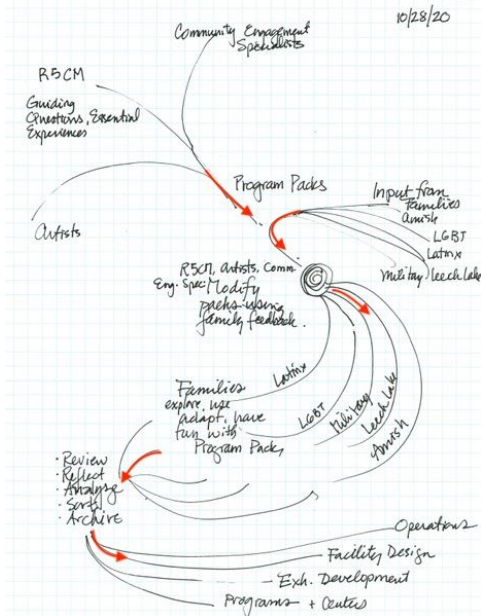 10/28/20
Community Engagement
Specialists
R5CM
Guiding
Questions, Essential
Experiences
Artists
Program Packs
Input from
Families
Amish
LGBT
Latinx
Military
Leech Lake
R5CM, Artists, Comm.
Eng. Spec. Modify
packs using
family feedback.
Latinx
LGBT
Military
Leech Lake
Amish
Families
explore, use
adapt, have
fun with
Program Packs
· Review
· Reflect
· Analyze
· Sort
· Archive
Operations
Facility Design
Exh. Development
Programs + Centers